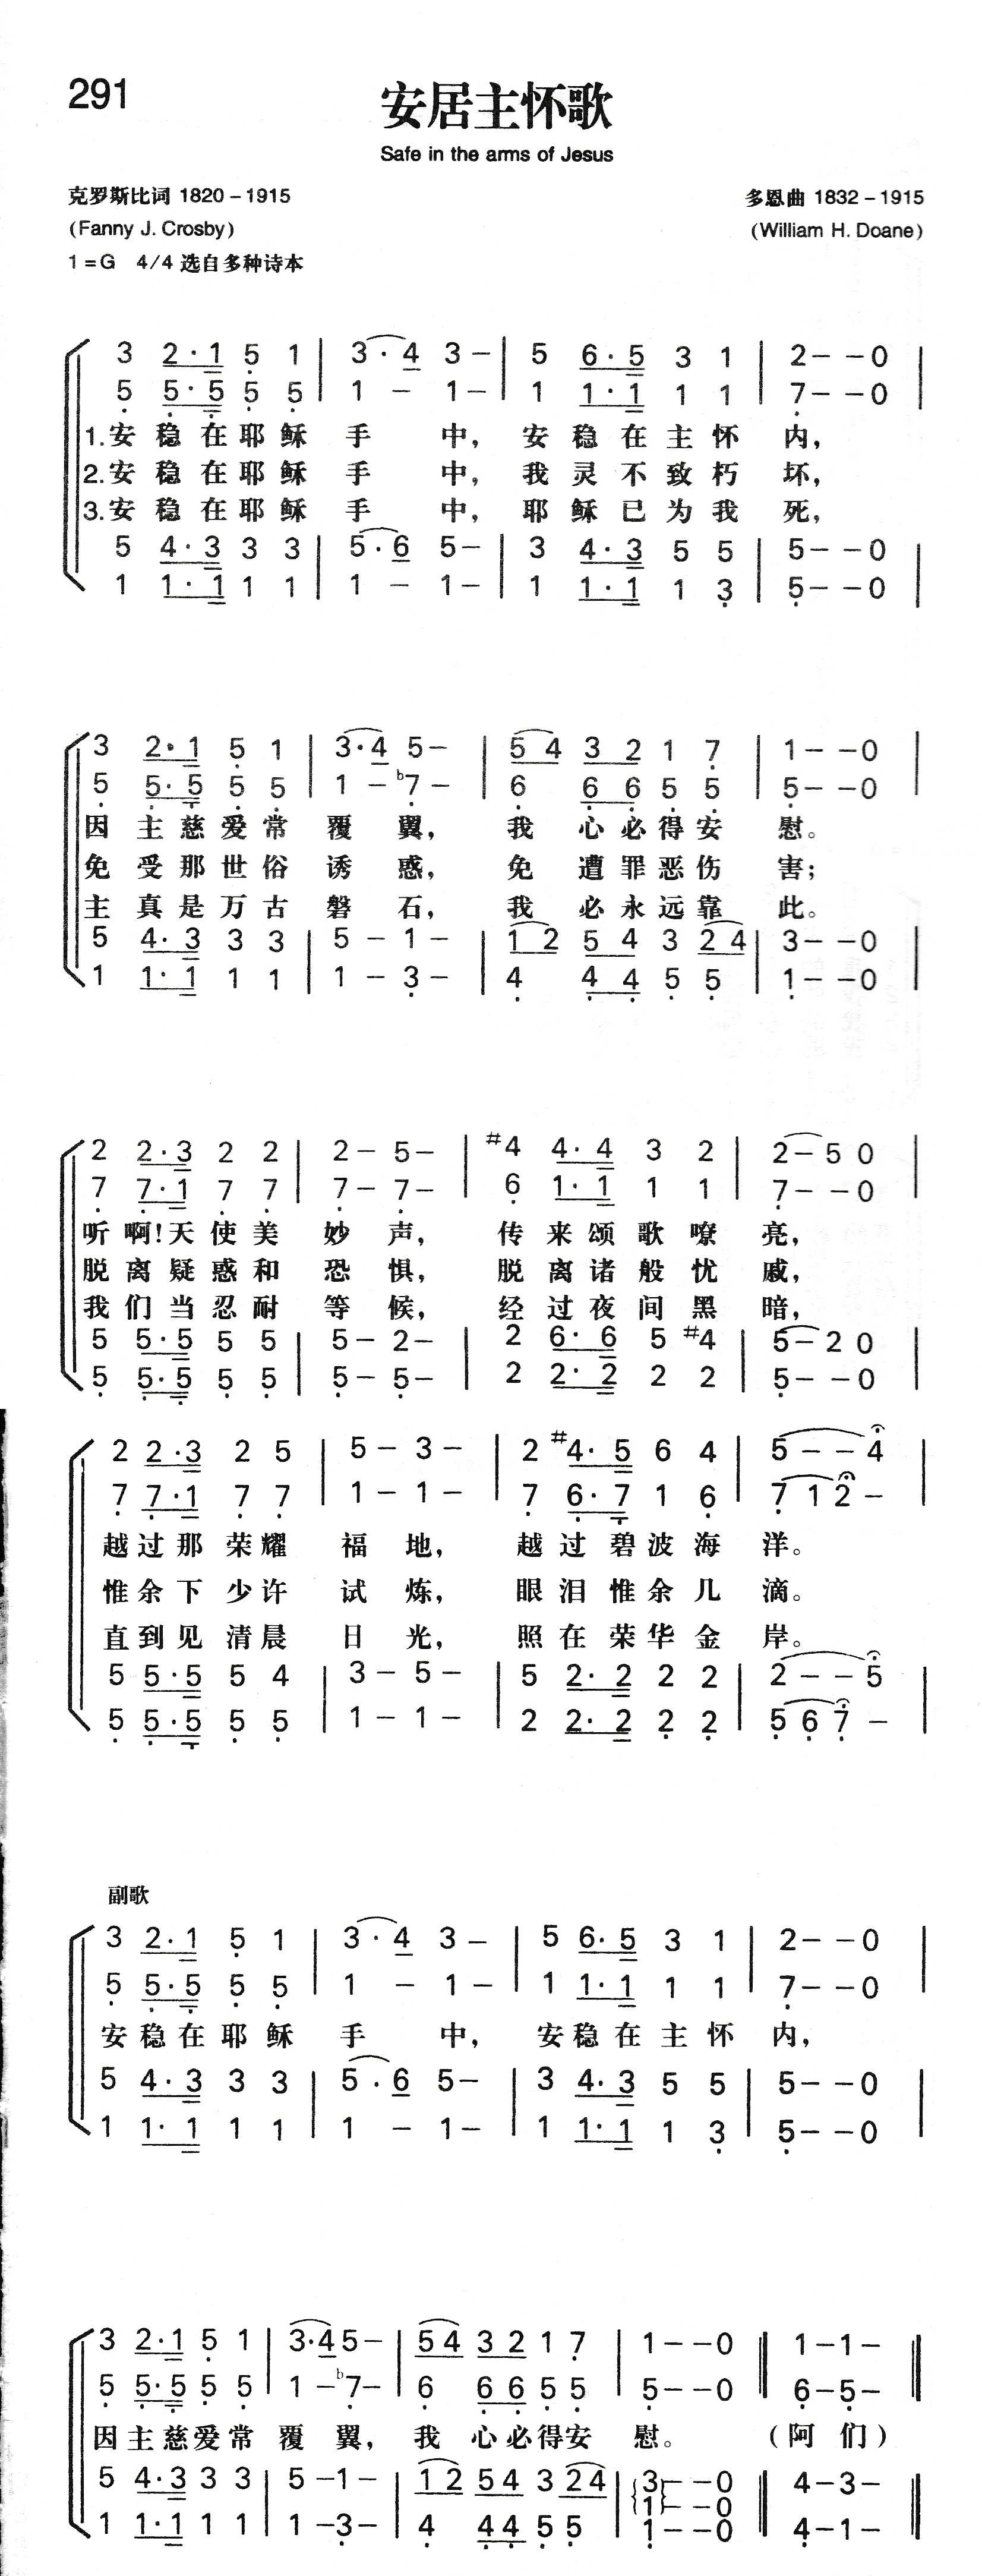 291
安居主怀歌
Safe in the arms of Jesus
克罗斯比词 1820－1915
多恩曲 1832－1915
(Fanny J. Crosby)
(William H. Doane)
1＝G 4/4 选自多种诗本
3 2·1 5 1 | 3·4 3－ | 5 6·5 3 1 | 2－－0 |
5 5·5 5 5 | 1－1－ | 1 1·1 1 1 | 7－－0 |
1.安稳在耶稣手中，安稳在主怀内，
2.安稳在耶稣手中，我灵不致朽坏，
3.安稳在耶稣手中，耶稣已为我死，
5 4·3 3 3 | 5·6 5－ | 3 4·3 5 5 | 5－－0 |
1 1·1 1 1 | 1－1－ | 1 1·1 1 3 | 5－－0 |
3 2·1 5 1 | 3·4 5－ | 5 4 3 2 1 7 | 1－－0 |
5 5·5 5 5 | 1－b7－ | 6 6 6 5 5 | 5－－0 |
因主慈爱常覆翼，我心必得安慰。
免受那世俗诱惑，免遭罪恶伤害；
主真是万古磐石，我必永远靠此。
5 4·3 3 3 | 5－1－ | 1 2 5 4 3 2 4 | 3－－0 |
1 1·1 1 1 | 1－3－ | 4 4 4 5 5 | 1－－0 |
2 2·3 2 2 | 2－5－ | #4 4·4 3 2 | 2－5 0 |
7 7·1 7 7 | 7－7－ | 6 1·1 1 1 | 7－－0 |
听啊！天使美妙声，传来颂歌嘹亮，
脱离疑惑和恐惧，脱离诸般忧戚，
我们当忍耐等候，经过夜间黑暗，
5 5·5 5 5 | 5－2－ | 2 6·6 5 #4 | 5－2 0 |
5 5·5 5 5 | 5－5－ | 2 2·2 2 2 | 5－－0 |
2 2·3 2 5 | 5－3－ | 2 #4·5 6 4 | 5－－4 |
7 7·1 7 7 | 1－1－ | 7 6·7 1 6 | 7 1 2－ |
越过那荣耀福地，越过碧波海洋。
惟余下少许试炼，眼泪惟余几滴。
直到见清晨日光，照在荣华金岸。
5 5·5 5 4 | 3－5－ | 5 2·2 2 2 | 2－－5 |
5 5·5 5 5 | 1－1－ | 2 2·2 2 2 | 5 6 7－ |
副歌
3 2·1 5 1 | 3·4 3－ | 5 6·5 3 1 | 2－－0 |
5 5·5 5 5 | 1－1－ | 1 1·1 1 1 | 7－－0 |
安稳在耶稣手中，安稳在主怀内，
5 4·3 3 3 | 5·6 5－ | 3 4·3 5 5 | 5－－0 |
1 1·1 1 1 | 1－1－ | 1 1·1 1 3 | 5－－0 |
3 2·1 5 1 | 3·4 5－ | 5 4 3 2 1 7 | 1－－0 ‖ 1－1－ ‖
5 5·5 5 5 | 1－b7－ | 6 6 6 5 5 | 5－－0 ‖ 6－5－ ‖
因主慈爱常覆翼，我心必得安慰。（阿们）
5 4·3 3 3 | 5－1－ | 1 2 5 4 3 2 4 | 3－－0 ‖ 4－3－ ‖
1－－0
1 1·1 1 1 | 1－3－ | 4 4 4 5 5 | 1－－0 ‖ 4－1－ ‖